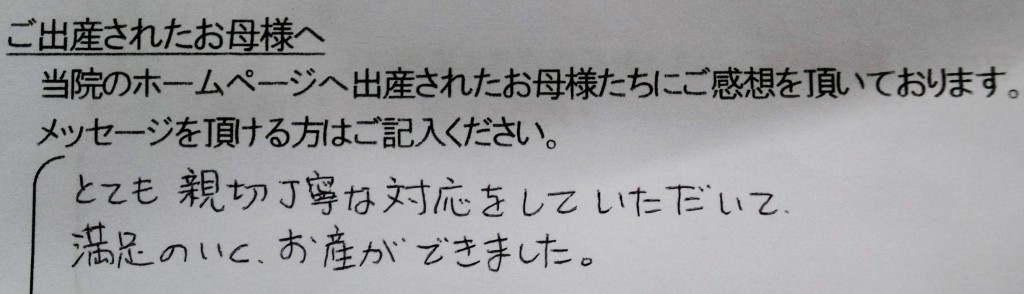 ご出産されたお母様へ
当院のホームページへ出産されたお母様たちにご感想を頂いております。
メッセージを頂ける方はご記入ください。
とても親切丁寧な対応をしていただいて、
満足のいく、お産ができました。